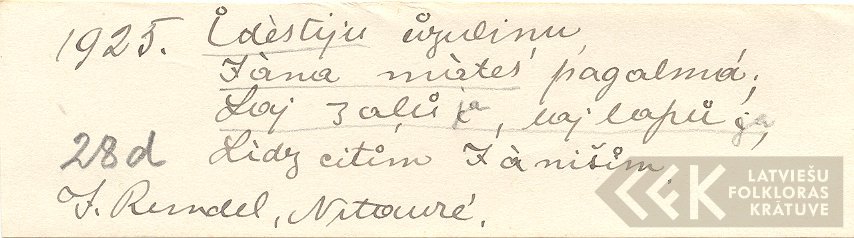 1925. Ůdèstiju ůzulinu,
Jàna màtes pagalmá;
Laj zalůja, laj lapůja,
28d Lidz citim Jànišim.
J. Rendel, Nitauré.
LATVIEŠU
FOLKLORAS
KRĀTUVE